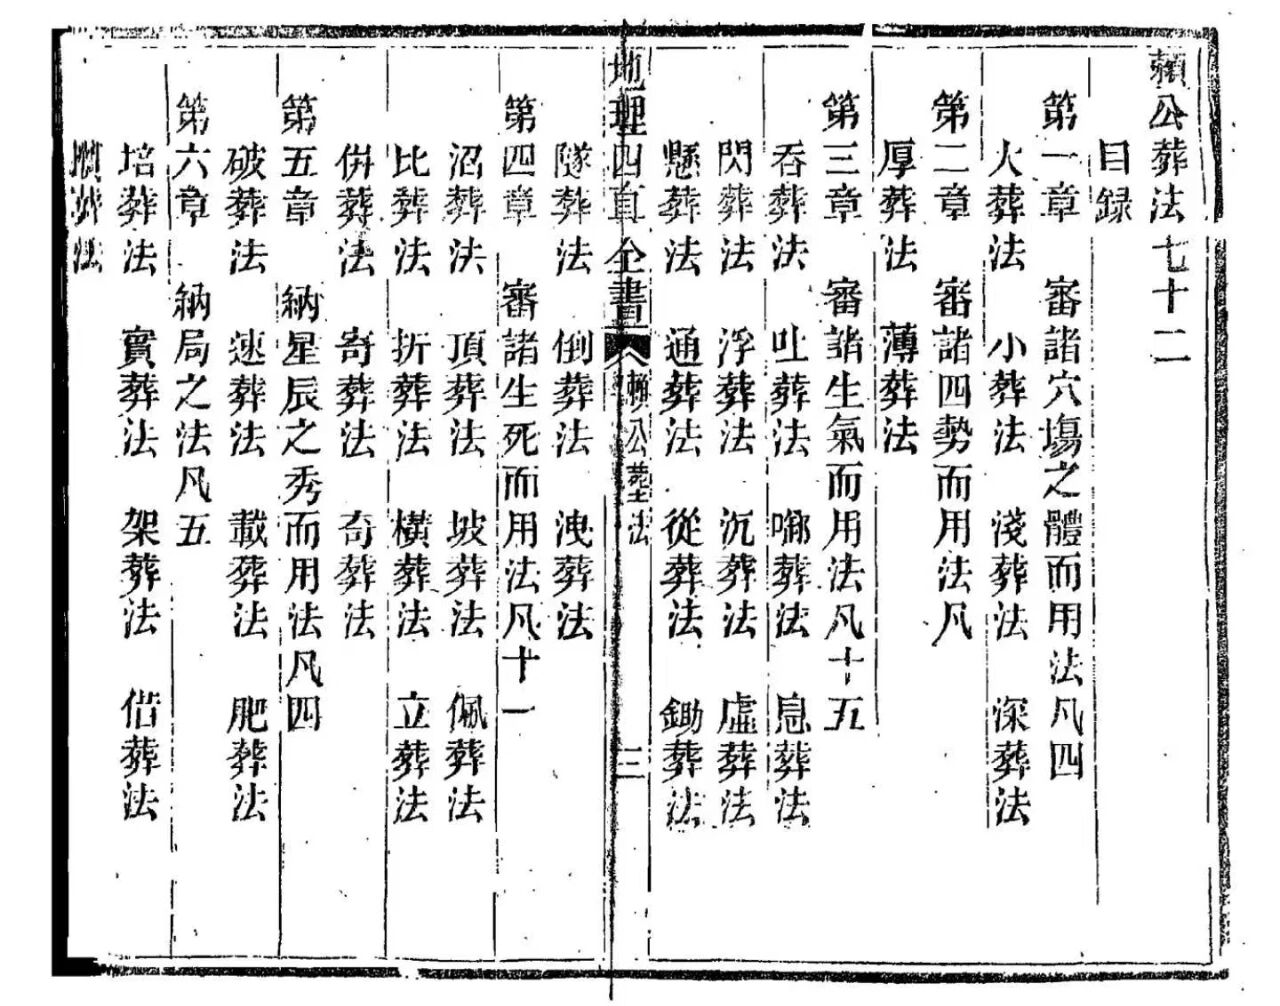 賴公葬法七十二
目録
第一章　審諸穴塲之體而用法凡四
大葬法　小葬法　淺葬法　深葬法
第二章　審諸四勢而用法凡
厚葬法　薄葬法
第三章　審諸生氣而用法凡十五
吞葬法　吐葬法　啣葬法　息葬法
閃葬法　浮葬法　沉葬法　虛葬法
懸葬法　通葬法　從葬法　鋤葬法
地理四真全書　賴公葬法　三
隧葬法　倒葬法　洩葬法
第四章　審諸生死而用法凡十一
沼葬法　頂葬法　坡葬法　佩葬法
比葬法　折葬法　橫葬法　立葬法
併葬法　寄葬法　奇葬法
第五章　納星辰之秀而用法凡四
破葬法　速葬法　載葬法　肥葬法
第六章　納局之法凡五
培葬法　實葬法　架葬法　借葬法
葬法